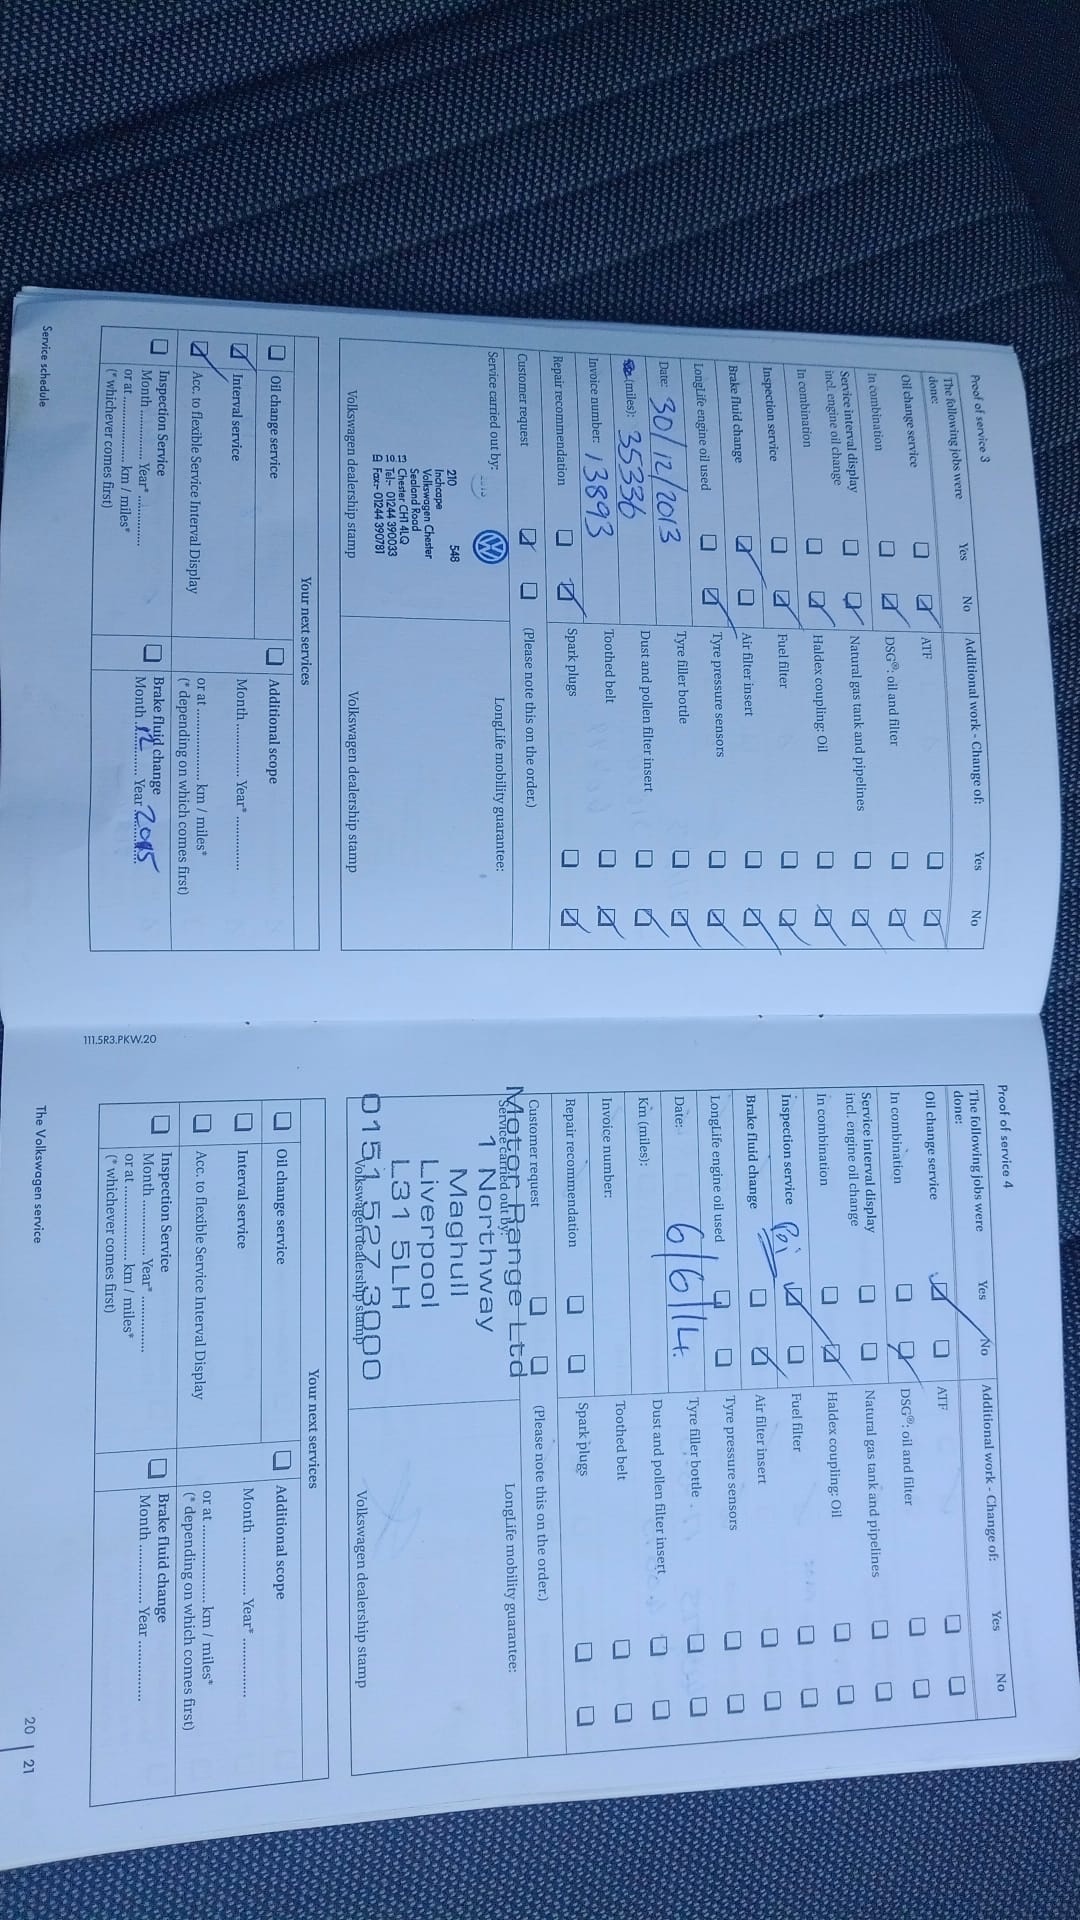 Proof of service 3
The following jobs were done: Yes No Additional work - Change of: Yes No
Oil change service ATF
In combination DSG®: oil and filter
Service interval display incl. engine oil change Natural gas tank and pipelines
In combination Haldex coupling: Oil
Inspection service Fuel filter
Brake fluid change Air filter insert
LongLife engine oil used Tyre pressure sensors
Date: 30/12/2013 Tyre filler bottle
(miles): 35336 Dust and pollen filter insert
Invoice number: 13893 Toothed belt
Repair recommendation Spark plugs
Customer request (Please note this on the order.)
Service carried out by: LongLife mobility guarantee:
210 548
Inchcape
Volkswagen Chester
Sealand Road
Chester CH1 4LQ
10.13 Tel:- 01244 390033
Fax:- 01244 390781
Volkswagen dealership stamp Volkswagen dealership stamp
Your next services
Oil change service Additional scope
Interval service Month ............ Year* ............
Acc. to flexible Service Interval Display or at ............ km / miles*
(* depending on which comes first)
Inspection Service Brake fluid change
Month ............ Year* ............ Month 12 Year 2015
or at ............ km / miles*
(* whichever comes first)
Service schedule
111.5R3.PKW.20
Proof of service 4
The following jobs were done: Yes No Additional work - Change of: Yes No
Oil change service ATF
In combination DSG®: oil and filter
Service interval display incl. engine oil change Natural gas tank and pipelines
In combination Haldex coupling: Oil
Inspection service Fuel filter
Brake fluid change Air filter insert
LongLife engine oil used Tyre pressure sensors
Date: 6/6/14. Tyre filler bottle
Km (miles): Dust and pollen filter insert
Invoice number: Toothed belt
Repair recommendation Spark plugs
Customer request (Please note this on the order.)
Service carried out by: LongLife mobility guarantee:
Motor Range Ltd
1 Northway
Maghull
Liverpool
L31 5LH
0151 527 3000
Volkswagen dealership stamp Volkswagen dealership stamp
Your next services
Oil change service Additional scope
Interval service Month ............ Year* ............
Acc. to flexible Service Interval Display or at ............ km / miles*
(* depending on which comes first)
Inspection Service Brake fluid change
Month ............ Year* ............ Month ............ Year ............
or at ............ km / miles*
(* whichever comes first)
The Volkswagen service 20 | 21